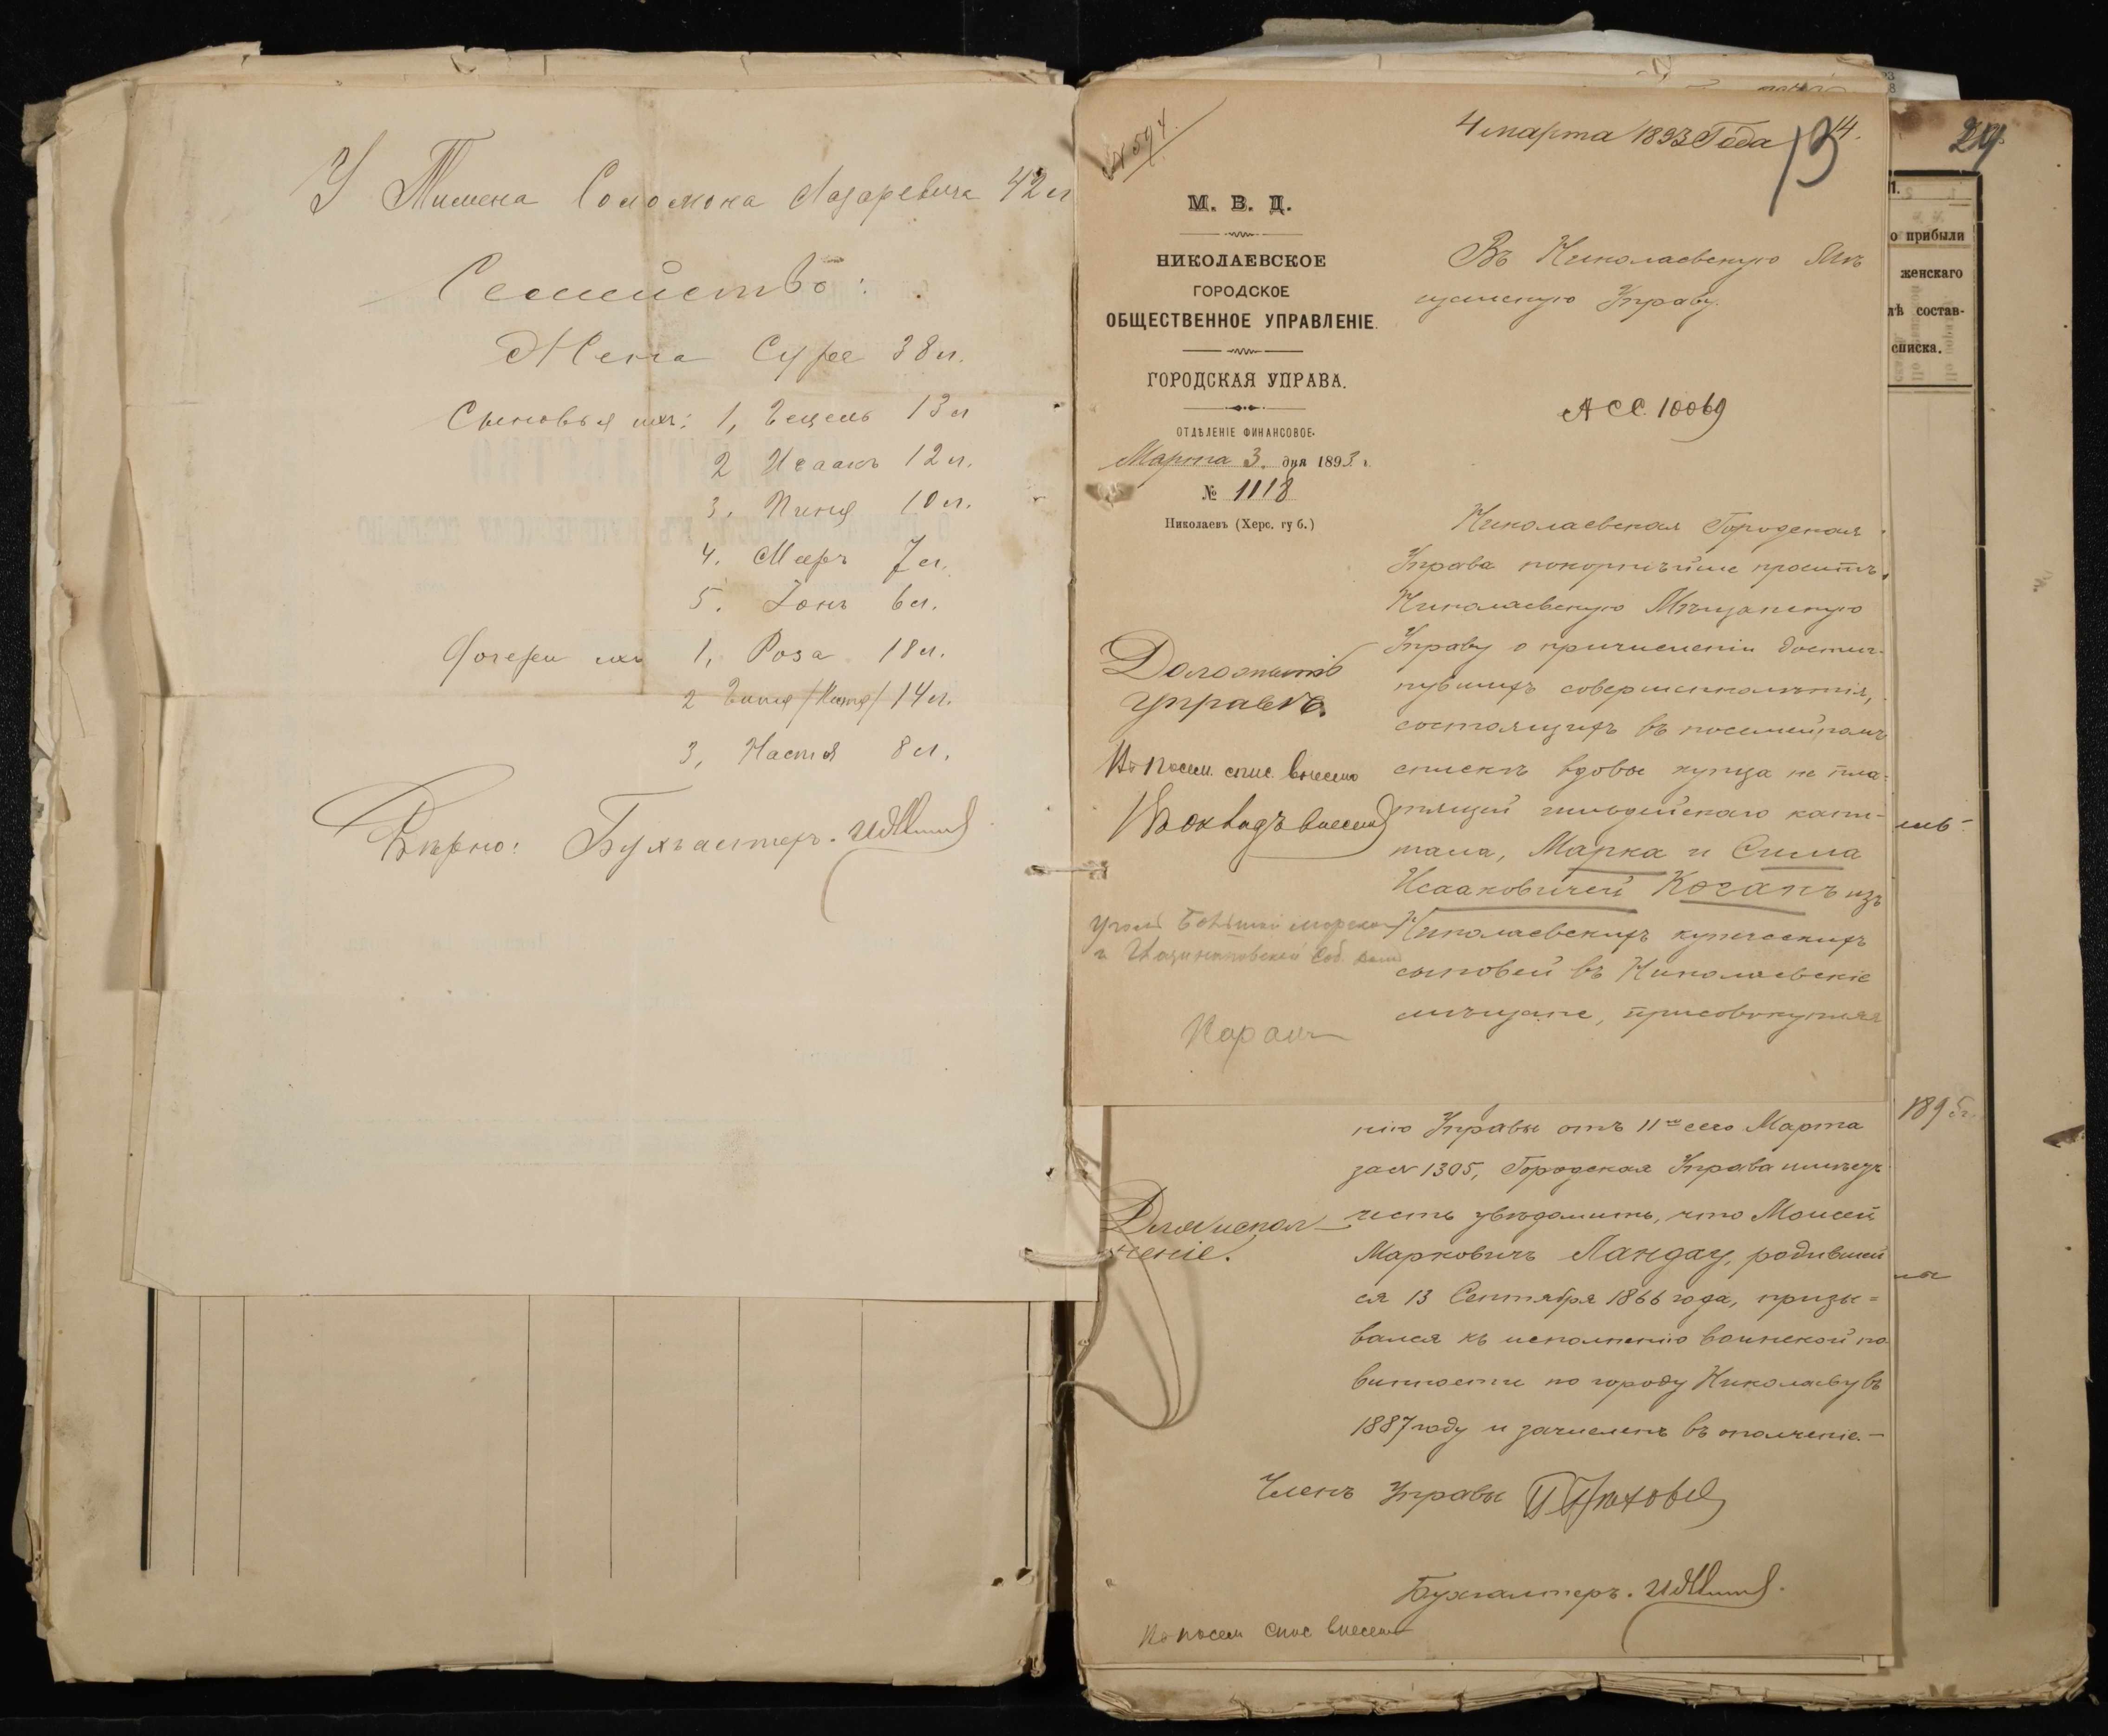 У Тимена Соломона Лазаревича 42 л
Семейство:
Жена Сура 38 л.
Сыновья ихъ: 1, Гецель 13 л
2 Исаакъ 12 л.
3, Пиня 10 л.
4. Мееръ 7 л.
5. Зонъ 6 л.
Дочери ихъ 1, Роза 18 л.
2 14 л.
3, Настя 8 л.
Вѣрно: Бухгалтеръ.
№ 594.
4 марта 1893 Года
13
14.
М. В. Д.
НИКОЛАЕВСКОЕ
ГОРОДСКОЕ
ОБЩЕСТВЕННОЕ УПРАВЛЕНІЕ.
ГОРОДСКАЯ УПРАВА.
ОТДѢЛЕНІЕ ФИНАНСОВОЕ.
Марта 3. дня 1893 г.
№ 1118
Николаевъ (Херс. губ.)
Въ Николаевскую Мѣ
щанскую Управу.
АСС. 10069
Николаевская Городская
Управа покорнѣйше проситъ
Николаевскую Мѣщанскую
Управу о причисленіи достиг-
нувшихъ совершеннолѣтія,
состоящихъ въ посемейномъ
спискѣ вдовы купца не пла-
тящей гильдейскаго капи-
тала, Марка и Сима
Исааковичей Коганъ изъ
Николаевскихъ купеческихъ
сыновей въ Николаевскіе
мѣщане, присовокупляя
Доложить
Управѣ.
По посем. спис. внесено
Въ окладъ внесенъ
уголъ Большой морской
и соб. домъ
нію Управы отъ 11го сего Марта
за № 1305, Городская Управа имѣетъ
честь увѣдомить, что Моисей
Марковичъ Ландау, родившій
ся 13 Сентября 1866 года, призы=
вался къ исполненію воинской по
винности по городу Николаеву въ
1887 году и зачисленъ въ ополченіе.-
Членъ Управы
Бухгалтеръ.
По посем спис внесено
24
о прибыли
женскаго
лѣ состав-
списка.
1895 г.